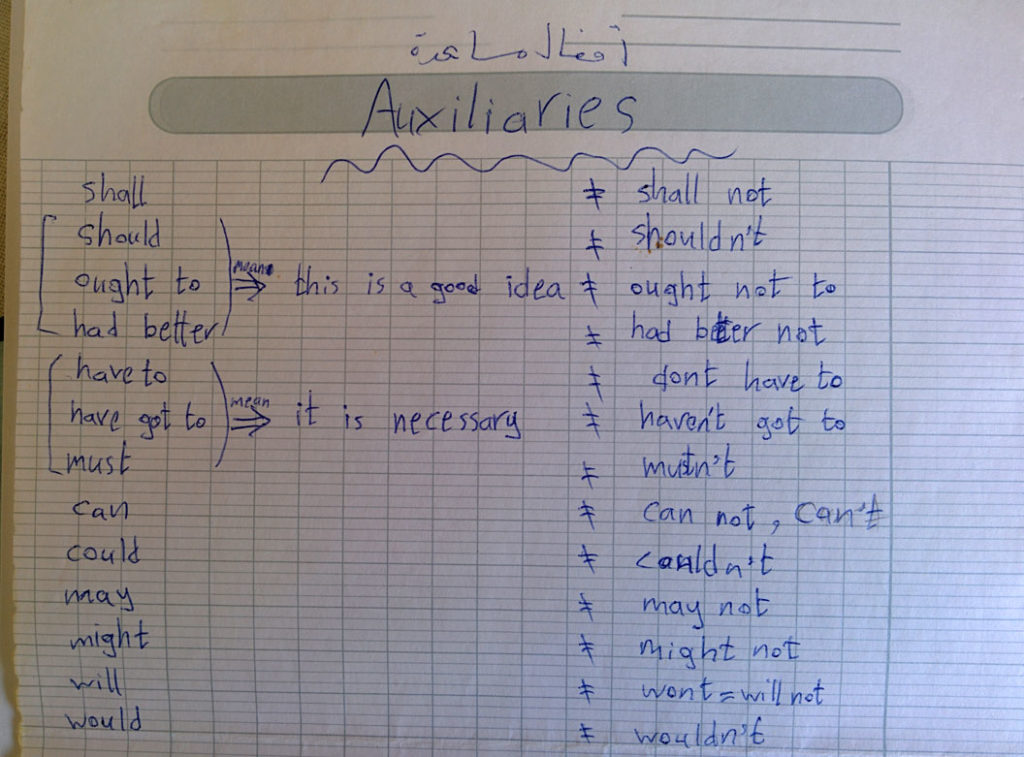 أفعال مساعدة
Auxiliaries
shall ≠ shall not
should ≠ shouldn't
ought to mean ⇒ this is a good idea ≠ ought not to
had better ≠ had better not
have to ≠ dont have to
have got to mean ⇒ it is necessary ≠ haven't got to
must ≠ mustn't
can ≠ can not , can't
could ≠ couldn't
may ≠ may not
might ≠ might not
will ≠ wont = will not
would ≠ wouldn't